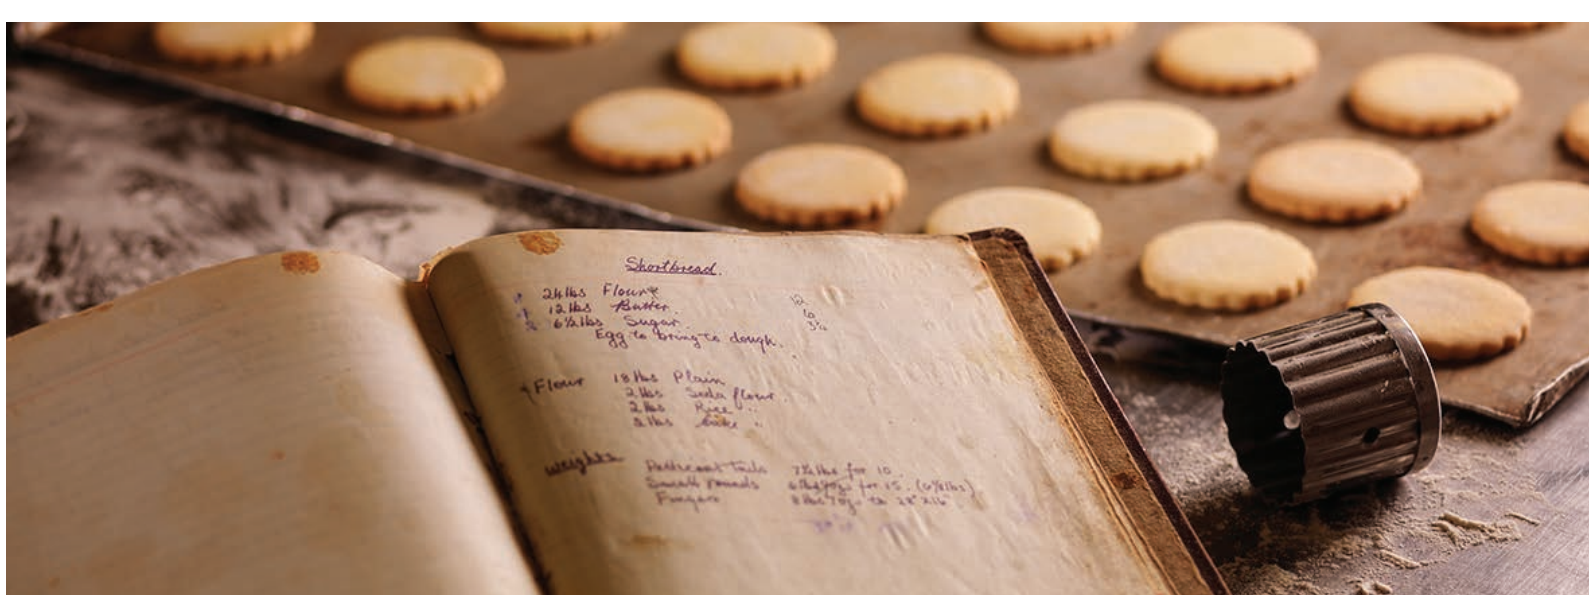 Shortbread.
24lbs Flour
12lbs Butter.
6½lbs Sugar.
Egg to bring to dough.
12
6
3¼
Flour 18lbs Plain
2lbs Soda flour.
2lbs Rice "
2lbs Cake "
Weights Petticoat Tails 7½lbs for 10.
Small rounds for 15. (6⅞lbs)
Fingers 28" x 16"